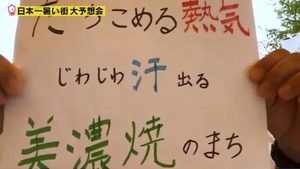 日本一暑い街 大予想会
たちこめる熱気
じわじわ汗出る
美濃焼のまち